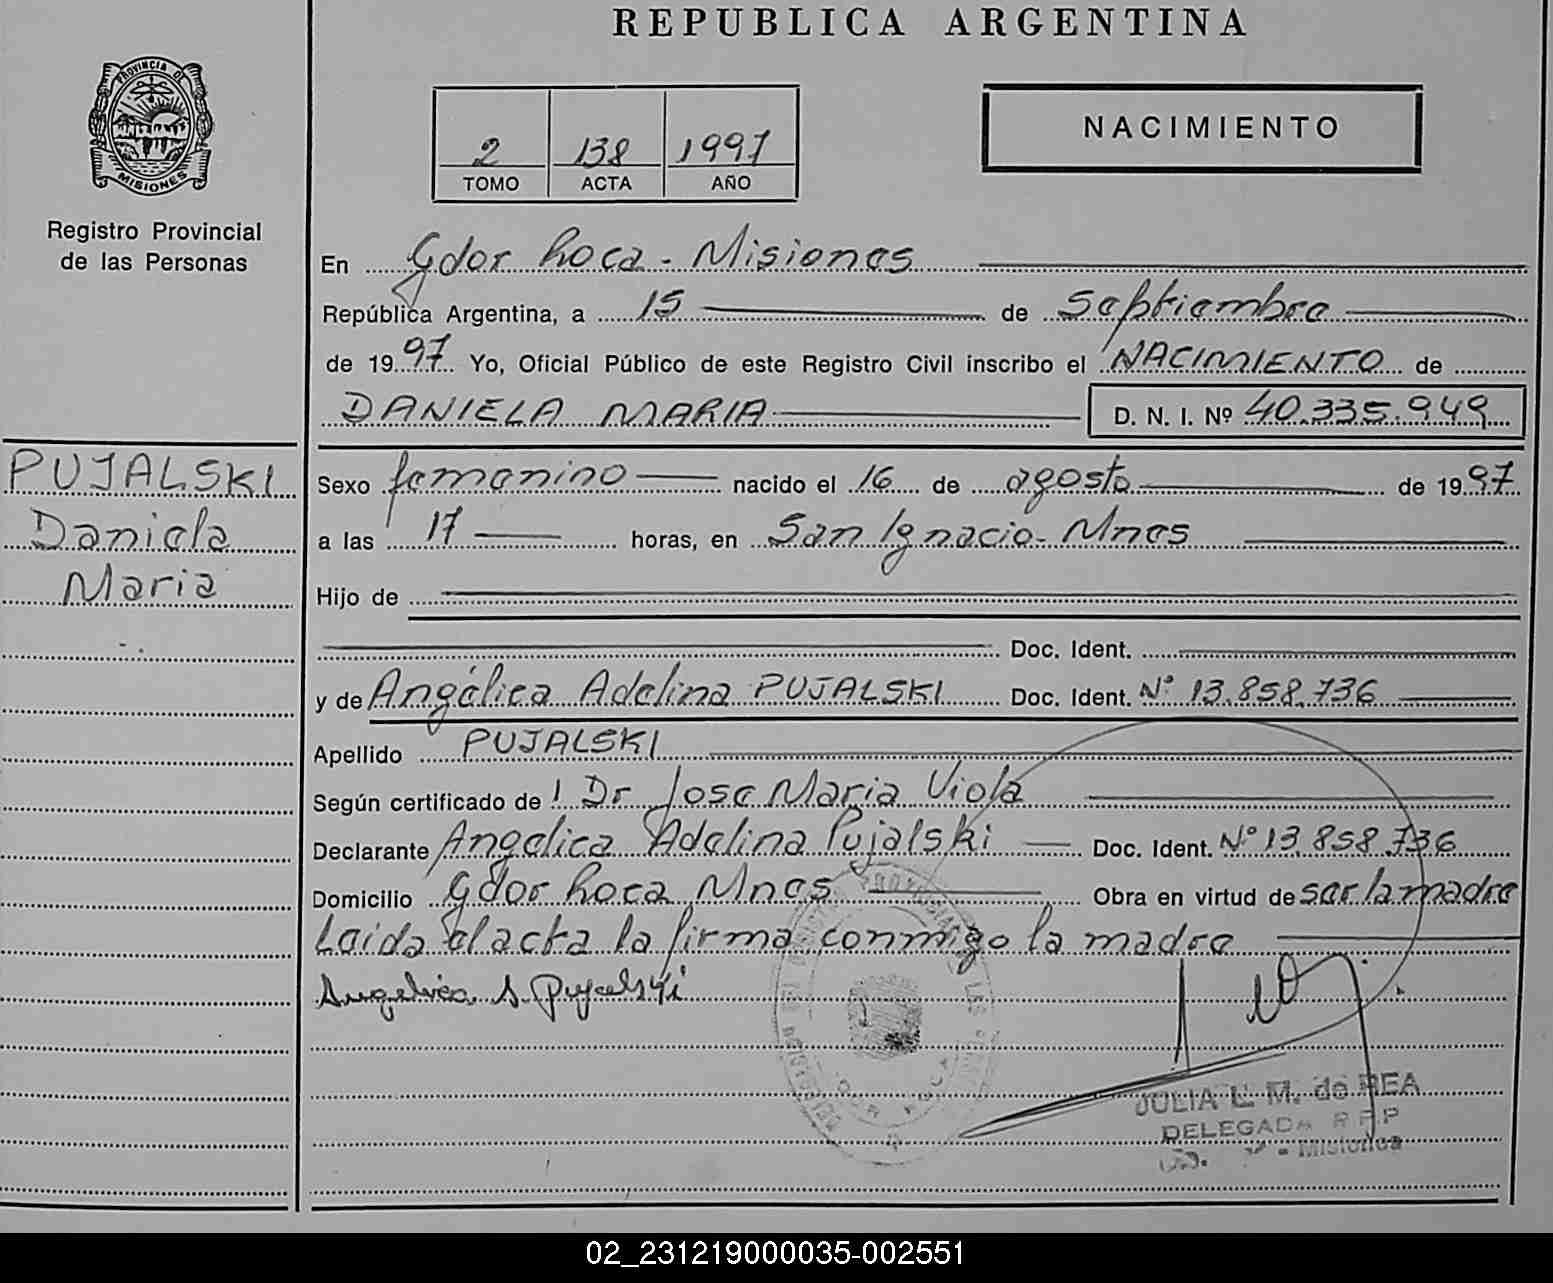 REPUBLICA ARGENTINA
PROVINCIA DE
MISIONES
Registro Provincial
de las Personas
2 138 1997
TOMO ACTA AÑO
NACIMIENTO
En Gdor Roca - Misiones
República Argentina, a 15 de Septiembre
de 1997 Yo, Oficial Público de este Registro Civil inscribo el NACIMIENTO de
DANIELA MARIA D. N. I. Nº 40.335.949
PUJALSKI
Daniela
Maria
Sexo femenino nacido el 16 de agosto de 1997
a las 17 horas, en San Ignacio - Mnes
Hijo de
Doc. Ident.
y de Angélica Adelina PUJALSKI Doc. Ident. Nº 13.858.736
Apellido PUJALSKI
Según certificado de l Dr Jose Maria Viola
Declarante Angelica Adelina Pujalski Doc. Ident. Nº 13.858.736
Domicilio Gdor Roca Mnes Obra en virtud de ser la madre
Leida el acta la firma conmigo la madre
Angelica A. Pujalski
JULIA L. M. de REA
DELEGADA R.P.P
Misiones
02_231219000035-002551